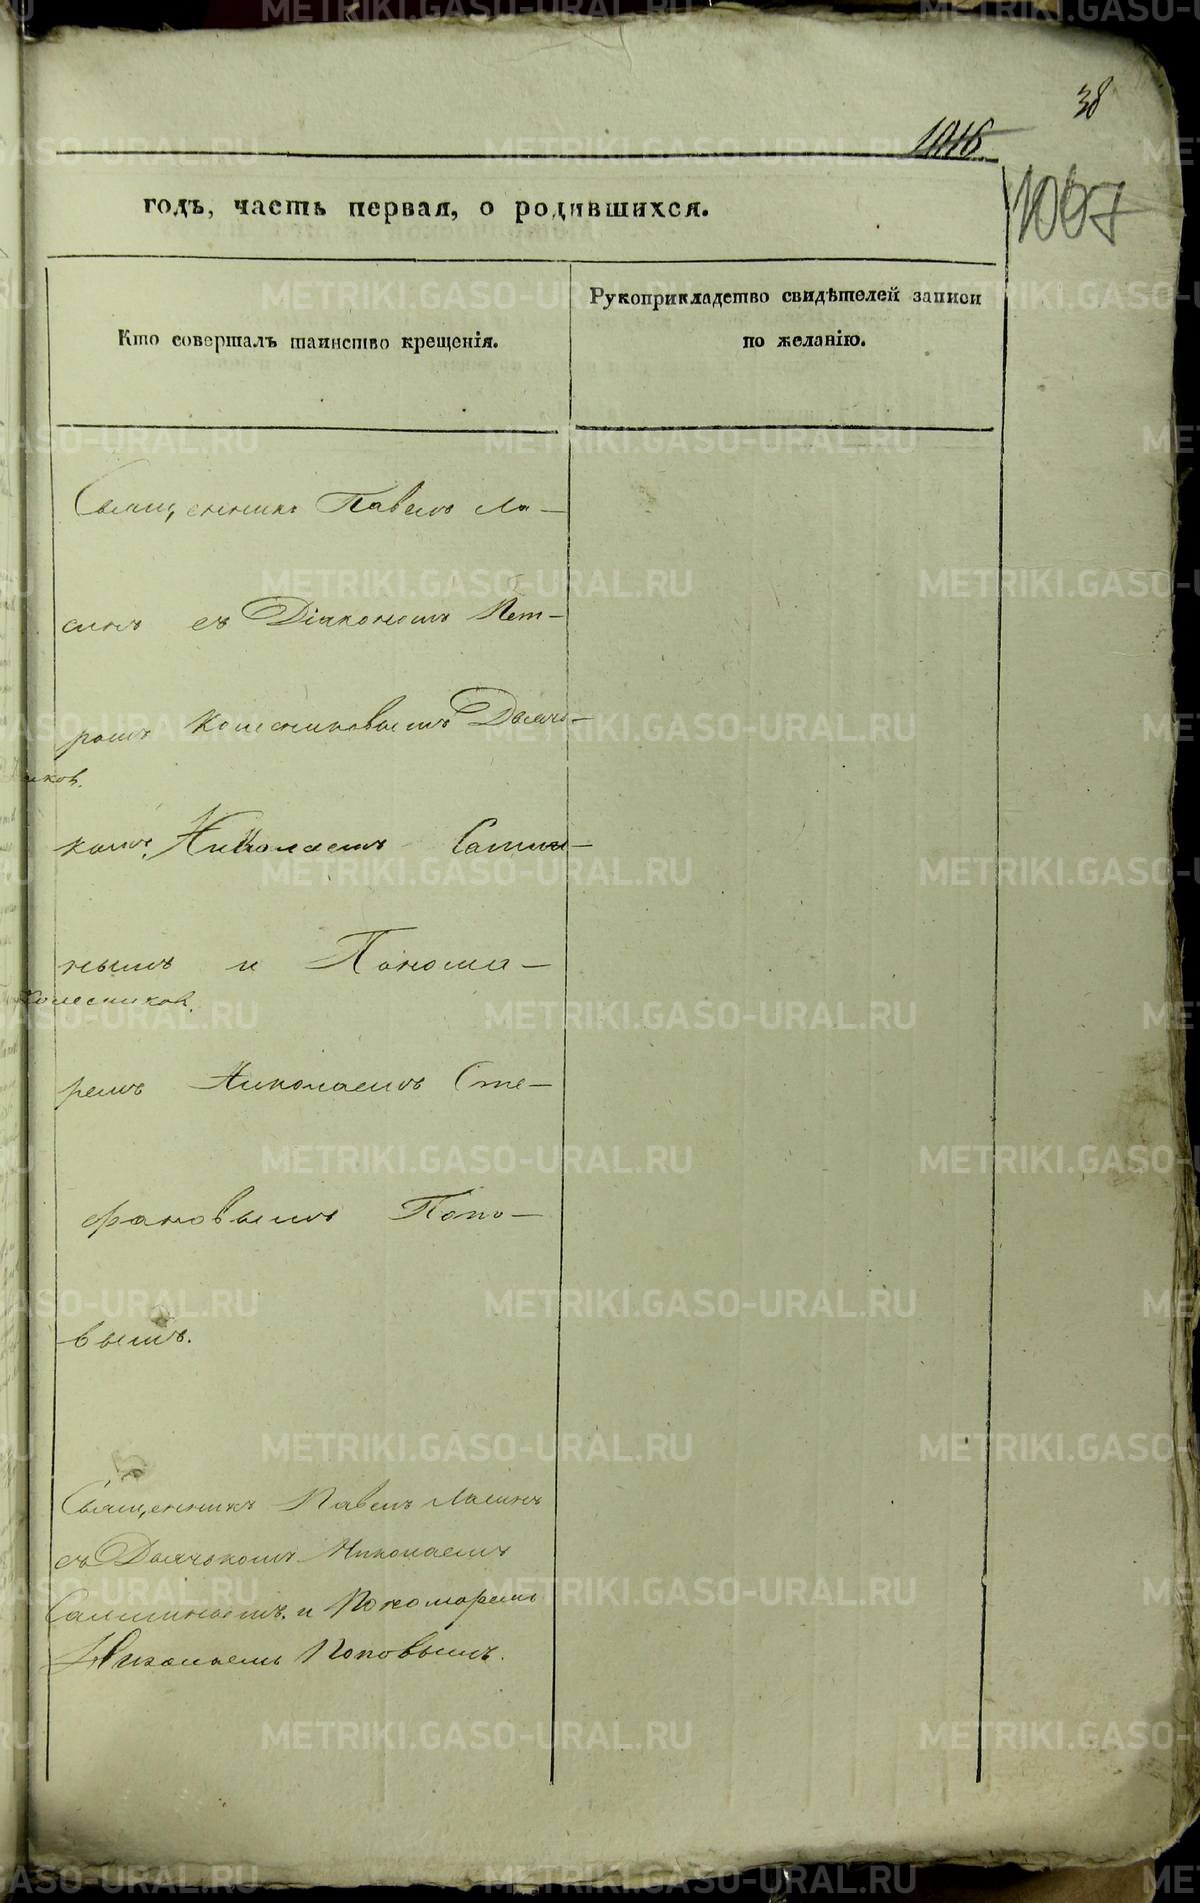 38
1016
1067
годъ, часть первая, о родившихся.
Кто совершалъ таинство крещенія.
Рукоприкладство свидѣтелей записи
по желанію.
Священникъ Павелъ Ла-
синъ съ Діакономъ Пет-
ромъ Колесниковымъ Дьяч-
ков.
комъ Николаемъ Сатин-
нымъ и Понома-
Колесников.
ремъ Николаемъ Сте-
фановымъ Попо-
вымъ.
Священникъ Павелъ Ласинъ
съ Дьячкомъ Николаемъ
и Пономаремъ
Николаемъ Поповымъ.
METRIKI.GASO-URAL.RU